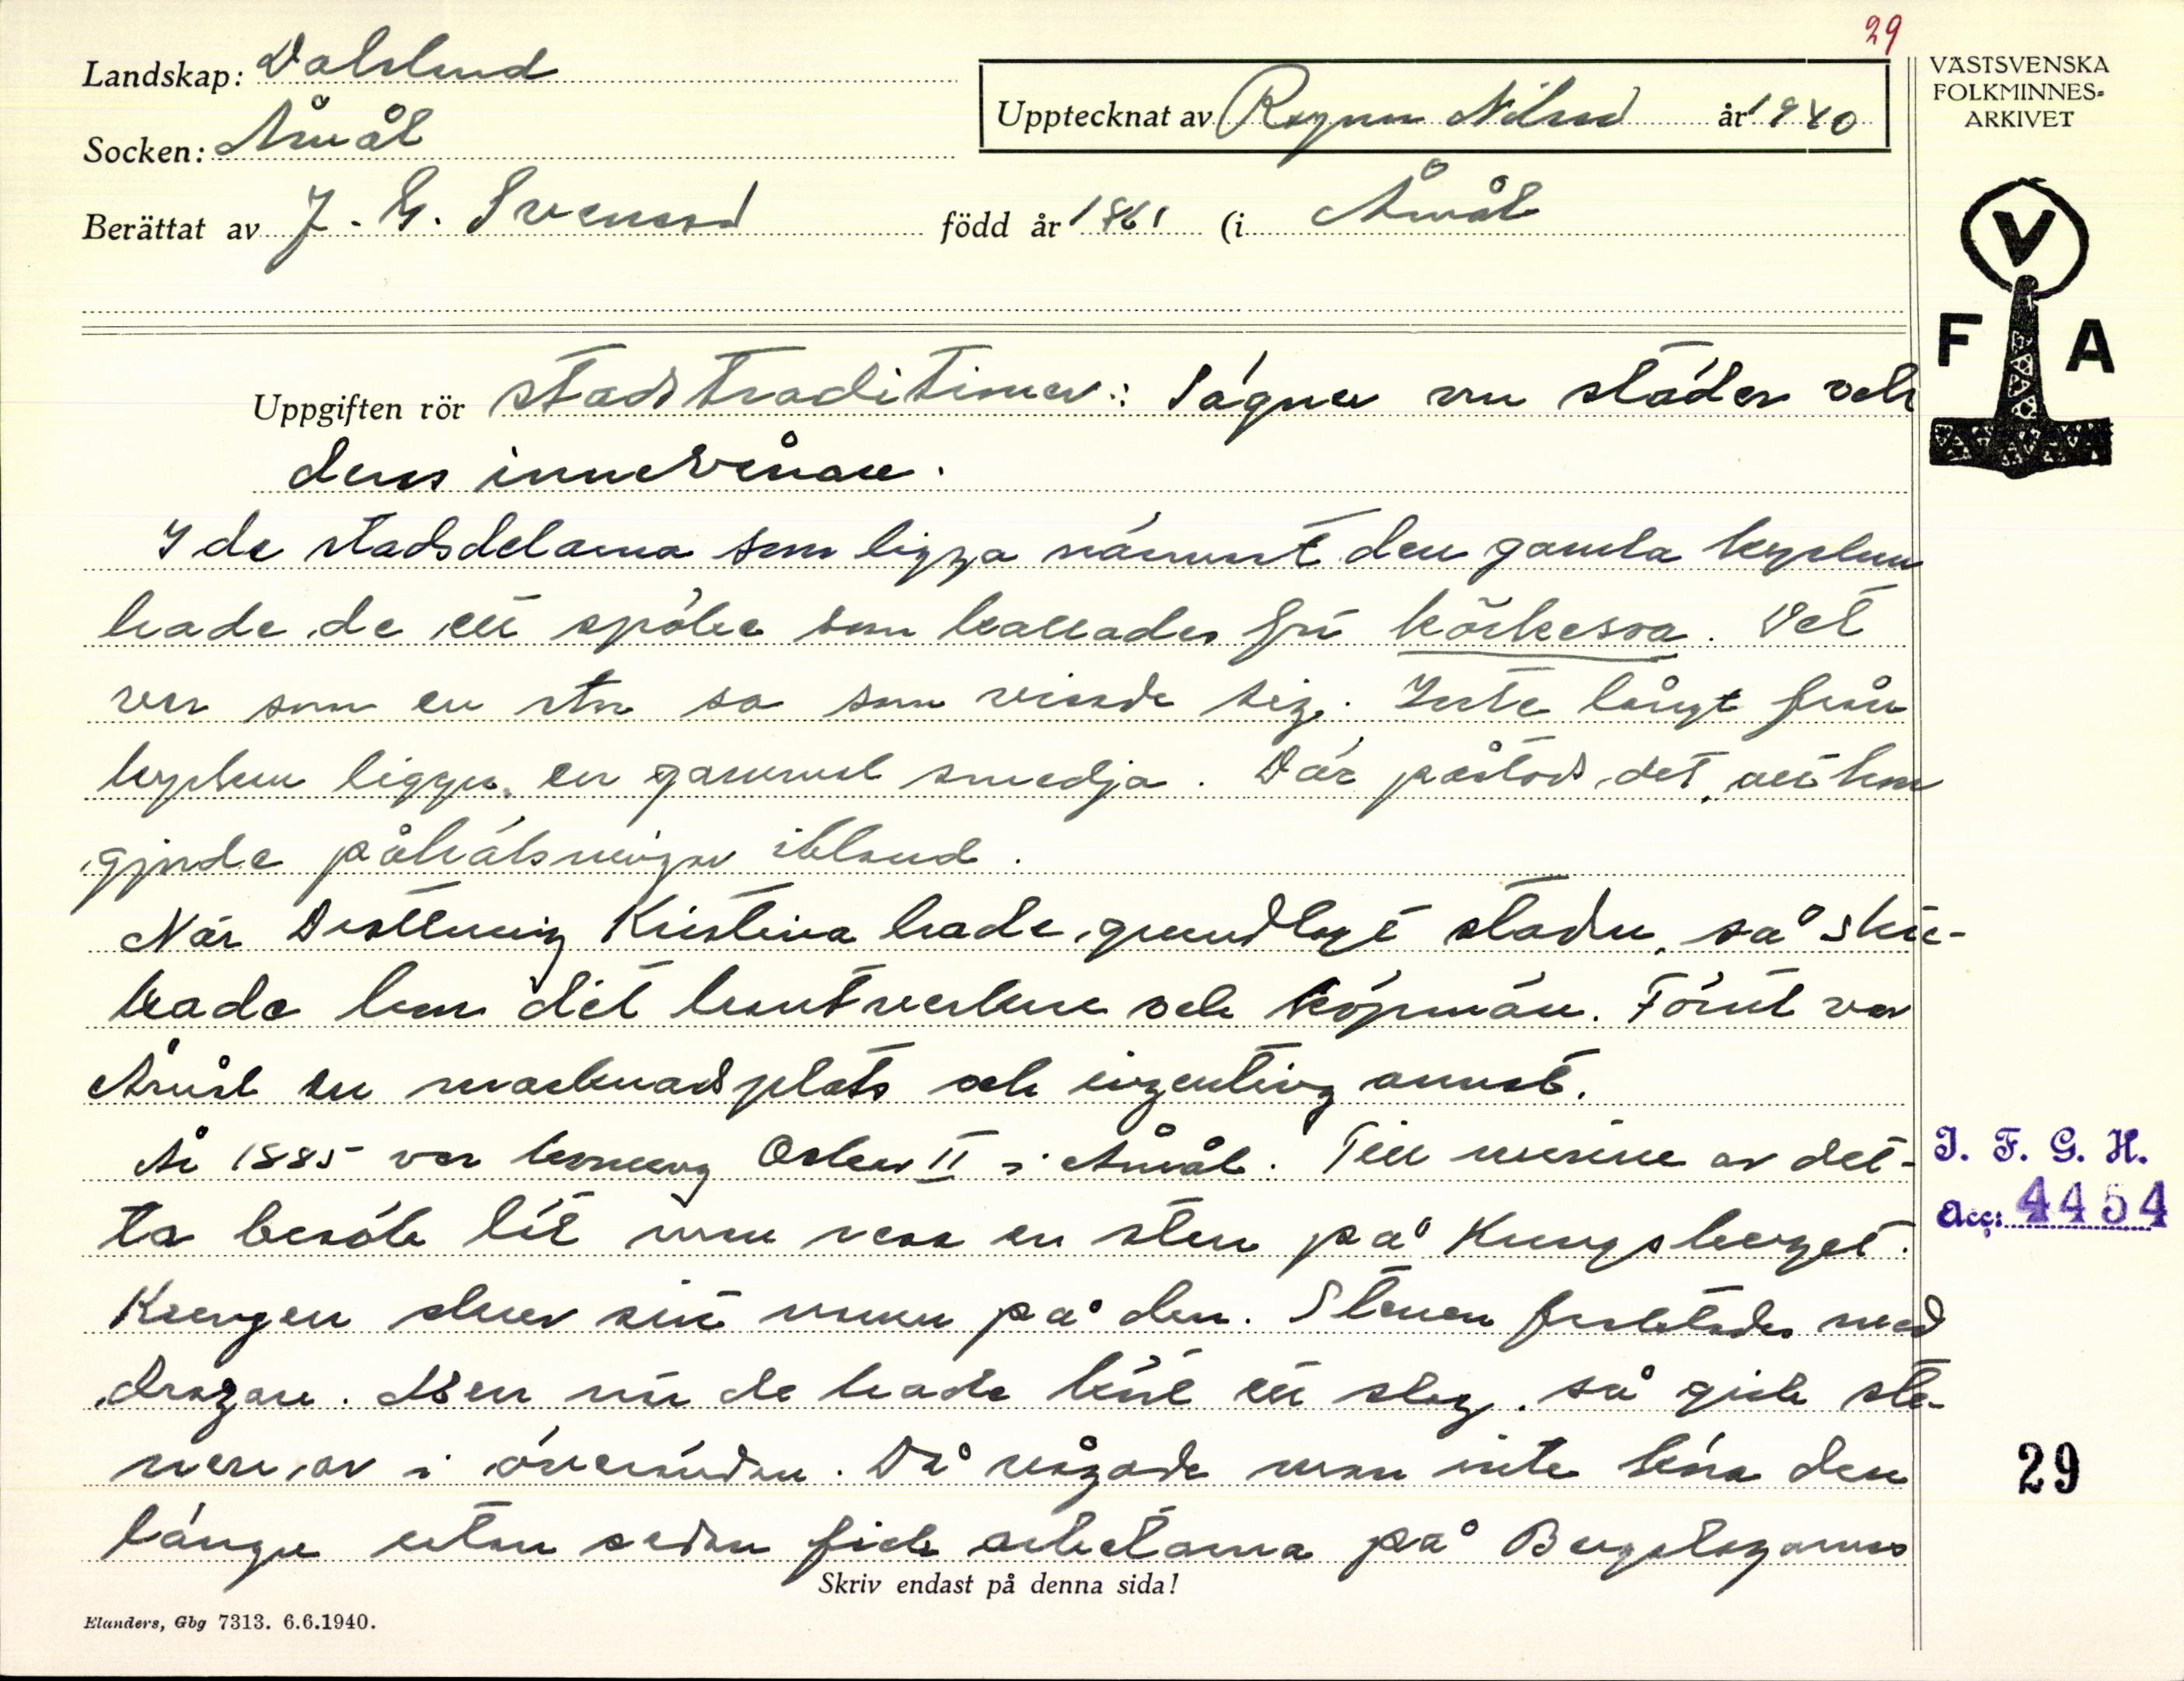 29
Landskap: Dalsland
Socken: Åmål
Upptecknat av Ragnar Nilsson år 1940
Berättat av J. G. Svensson född år 1861 (i Åmål
VÄSTSVENSKA
FOLKMINNES-
ARKIVET
V
F A
Uppgiften rör Stadstraditioner: Sägner om städer och
dess innevånare.
I de stadsdelarna som ligga närmast den gamla kyrkan
hade de ett spöke som kallades för körkesoa. Det
var som en stor so som visade sig. Inte långt från
kyrkan ligger en gammal smedja. Där påstods det, att hon
gjorde påhälsningar ibland.
När Drottning Kristina hade grundlagt staden, så skic-
kade hon dit hantverkare och köpmän. Förut var
Åmål en marknadsplats och ingenting annat.
År 1885 var konung Oskar II i Åmål. Till minne av det-
ta besök lät man resa en sten på Kungsberget.
Kungen skrev sitt namn på den. Stenen forslades med
dragare. Men när de hade kört ett slag, så gick ste-
nen av i överändan. Då vågade man inte köra den
längre utan sedan fick arbetarna på Bergslagarnas
Skriv endast på denna sida!
Elanders, Gbg 7313. 6.6.1940.
I. F. G. H.
Acc: 4454
29